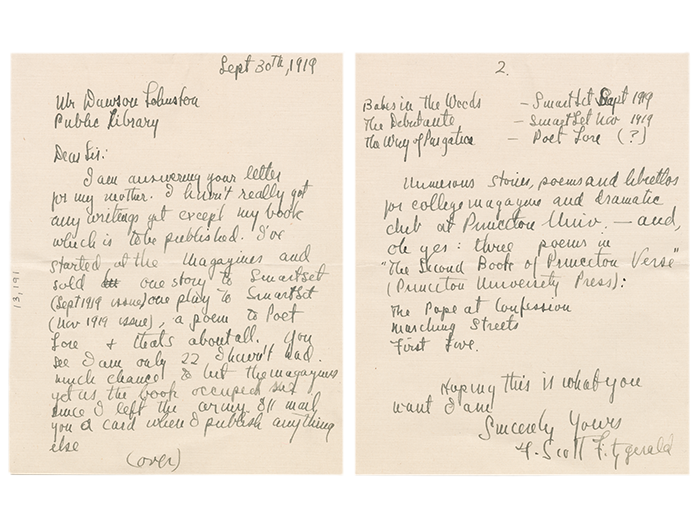 Sept 30th, 1919
Mr Dawson Johnston
Public Library
Dear Sir:
I am answering your letter
for my mother. I havn't really got
any writings yet except my book
which is to be published. I've
started at the magazines and
sold one story to Smartset
(Sept 1919 issue) one play to Smartset
(Nov 1919 issue), a poem to Poet
Lore + thats about all. You
see I am only 22, I havn't had
much chance to hit the magazines
yet as the book occupied
since I left the army. I'll mail
you a card when I publish anything
else
(over)
13,191
2.
Babes in the Woods — Smart Set Sept 1919
The Debutante — Smart Set Nov 1919
The Way of Purgation — Poet Lore (?)
Numerous stories, poems and librettos
for college magazine and dramatic
club at Princeton Univ. — and,
oh yes: three poems in
"The Second Book of Princeton Verse"
(Princeton University Press):
The Pope at Confession
Marching Streets
First Love.
Hoping this is what you
want I am
Sincerely Yours
F. Scott Fitzgerald